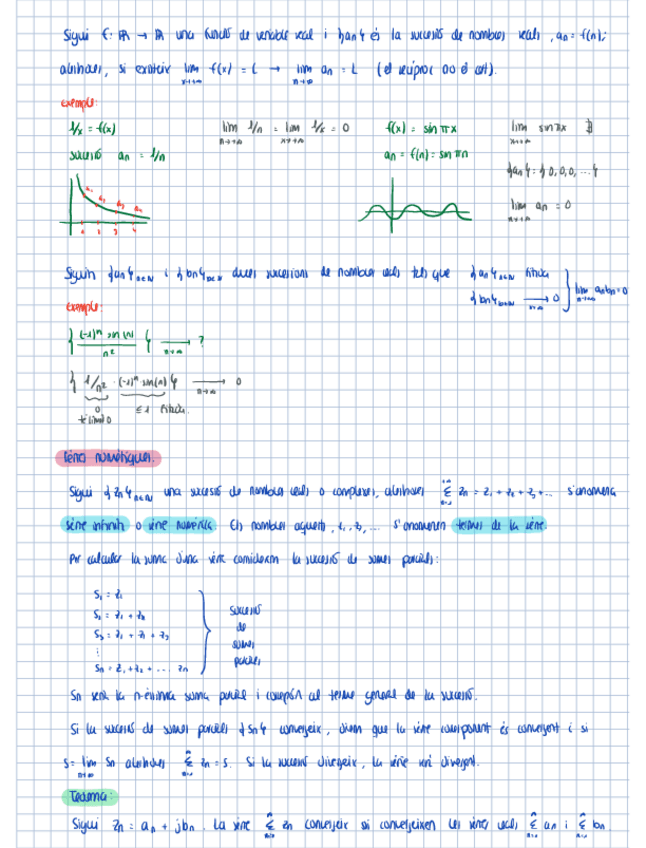 Sigui f: ℝ → ℝ una funció de variable real i {an} és la successió de nombres reals, an = f(n);
aleshores, si existeix lim x→+∞ f(x) = L → lim n→∞ an = L (el recíproc no és cert).
exemple:
1/x = f(x)
lim n→+∞ 1/n = lim x→+∞ 1/x = 0
f(x) = sin πx
lim x→+∞ sin πx ∄
successió an = 1/n
an = f(n) = sin πn
{an} = {0,0,0,...}
lim n→+∞ an = 0
a1 a2 a3 a4
1 2 3 4
Siguin {an}n∈ℕ i {bn}n∈ℕ dues successions de nombres reals tals que {an}n∈ℕ fitada
{bn}n∈ℕ → n→∞ 0 } lim n→∞ an bn = 0
exemple:
{ (-1)^n sin(n) / n² } → n→+∞ ?
{ 1/n² · (-1)^n sin(n) } → n→+∞ 0
0 ≤1 fitada.
té límit 0
Sèries numèriques.
Sigui {zn}n∈ℕ una successió de nombres reals o complexos, aleshores Σ zn = z1 + z2 + z3 + ... s'anomena
sèrie infinita o sèrie numèrica. Els nombres aquests, z1, z2, ... s'anomenen termes de la sèrie.
Per calcular la suma d'una sèrie considerem la successió de sumes parcials:
S1 = z1
S2 = z1 + z2
S3 = z1 + z2 + z3
⋮
Sn = z1 + z2 + ... zn
successió
de
sumes
parcials
Sn serà la n-èssima suma parcial i correspón al terme general de la successió.
Si la successió de sumes parcials {Sn} convergeix, diem que la sèrie corresponent és convergent i si
S = lim n→∞ Sn aleshores Σ zn = S. Si la successió divergeix, la sèrie serà divergent.
Teorema:
Sigui zn = an + jbn. La sèrie Σ zn convergeix si convergeixen les sèries reals Σ an i Σ bn.